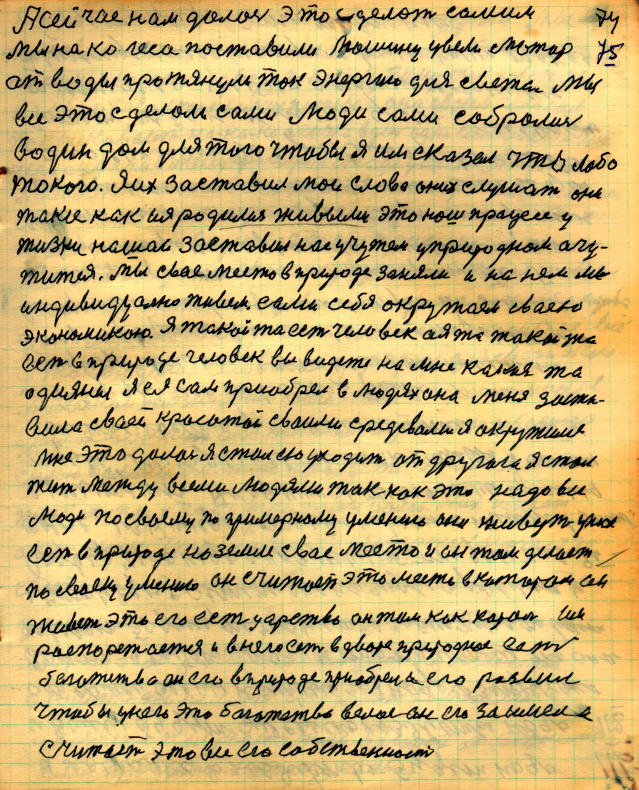 А сейчас нам далось это сделат самим 74
мы на колеса поставили машину увели мотор 75
от воды протянули ток энергию для света. Мы
все это сделали сами люди сами собрались
в один дом для того чтобы я им сказал что либо
такого. Я их заставил мои слова они слушат они
такие как и я родились живыми это наш процесс у
жизни нашей заставил нас учутем у природном очу-
тится. Мы свае место в природе заняли и на нем мы
индивидуално живем сами себя окружаем сваею
экономикою. Я такой та сет человек а я та такой та
ест в природе человек вы видете на мне какая та
одияния я ея сам приобрел в людях она меня заста-
вила сваей красотой сваими средсвами я окружился
мне это далось я стал ею уходит от другога я стал
жит между всеми людями так как это надо все
люди по своему по примерному умению они живут у них
ест в природе на земле свае место и он там делает
по своему умению он считает это место в катаром он
живет это его ест царство он там как карол им
распоретается и в него ест в дваре природное
багатство он его в природе приобрел и его развил
чтобы у него это багатство велос он его заимел и
считает это все его собственност